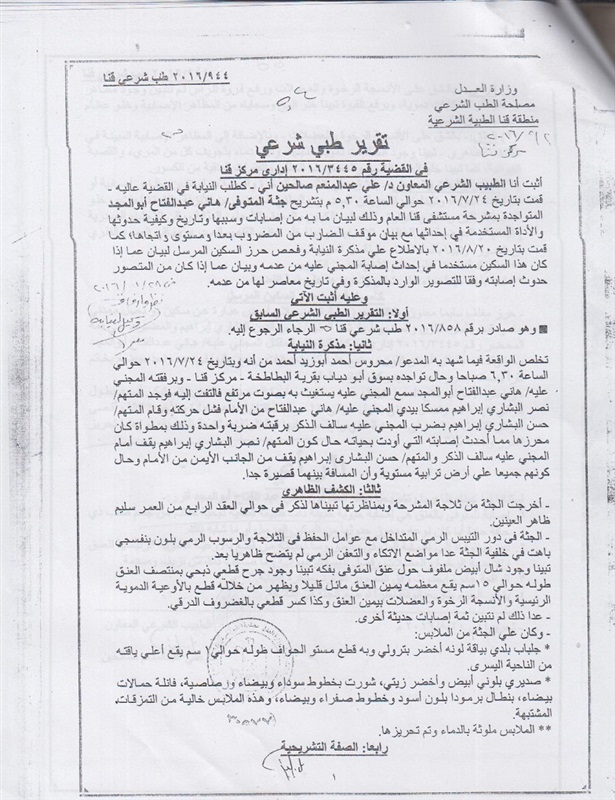 ٢٠١٦/٩٤٤ طب شرعي قنا
وزارة العـدل
مصلحة الطب الشرعي
منطقة قنا الطبية الشرعية
تقرير طبي شرعي
في القضية رقم ٢٠١٦/٣٤٤٥ إداري مركز قنا
أثبت أنا الطبيب الشرعي المعاون د/ علي عبدالمنعم صالحين أني - كطلب النيابة في القضية عاليه -
قمت بتاريخ ٢٠١٦/٧/٢٤ حوالي الساعة ٥,٣٠ م بتشريح جثة المتوفى/ هاني عبدالفتاح أبوالمجد
المتواجدة بمشرحة مستشفى قنا العام وذلك لبيان ما به من إصابات وسببها وتاريخ وكيفية حدوثها
والأداة المستخدمة في إحداثها مع بيان موقف الضارب من المضروب بعدا ومستوى واتجاها؛ كما
قمت بتاريخ ٢٠١٦/٨/٢٠ بالاطلاع علي مذكرة النيابة وفحص حرز السكين المرسل لبيان عما إذا
كان هذا السكين مستخدما في إحداث إصابة المجني عليه من عدمه وبيان عما إذا كان من المتصور
حدوث إصابته وفقا للتصوير الوارد بالمذكرة وفي تاريخ معاصر لها من عدمه.
وعليه أثبت الآتي
أولا: التقرير الطبي الشرعي السابق
وهو صادر برقم ٢٠١٦/٨٥٨ طب شرعي قنا الرجاء الرجوع إليه.
ثانيا: مذكرة النيابة
تخلص الواقعة فيما شهد به المدعو/ محروس أحمد أبوزيد أحمد من أنه وبتاريخ ٢٠١٦/٧/٢٤ حوالي
الساعة ٦,٣٠ صباحا وحال تواجده بسوق أبو دياب بقرية البطاطخة - مركز قنا - وبرفقته المجني
عليه/ هاني عبدالفتاح أبوالمجد سمع المجني عليه يستغيث به بصوت مرتفع فالتفت إليه فوجد المتهم/
نصر البشاري إبراهيم ممسكا بيدي المجني عليه/ هاني عبدالفتاح من الأمام فشل حركته وقام المتهم/
حسن البشاري إبراهيم بضرب المجني عليه سالف الذكر برقبته ضربة واحدة وذلك بمطواة كان
محرزها مما أحدث إصابته التي أودت بحياته حال كون المتهم/ نصر البشاري إبراهيم يقف أمام
المجني عليه سالف الذكر والمتهم/ حسن البشارى إبراهيم يقف من الجانب الأيمن من الأمام وحال
كونهم جميعا علي أرض ترابية مستوية وأن المسافة بينهما قصيرة جدا.
ثالثا: الكشف الظاهري
- أخرجت الجثة من ثلاجة المشرحة وبمناظرتها تبيناها لذكر فى حوالي العقد الرابع من العمر سليم
ظاهر العينين.
- الجثة فى دور التيبس الرمي المتداخل مع عوامل الحفظ فى الثلاجة والرسوب الرمي بلون بنفسجي
باهت في خلفية الجثة عدا مواضع الاتكاء والتعفن الرمي لم يتضح ظاهريا بعد.
تبينا وجود شال أبيض ملفوف حول عنق المتوفى بفكه تبينا وجود جرح قطعي ذبحي بمنتصف العنق
طوله حوالي ١٥سم يقع معظمه يمين العنق مائل قليلا ويظهر من خلاله قطع بالأوعية الدموية
الرئيسية والأنسجة الرخوة والعضلات بيمين العنق وكذا كسر قطعي بالغضروف الدرقي.
- عدا ذلك لم نتبين ثمة إصابات حديثة أخرى.
- وكان علي الجثة من الملابس:
* جلباب بلدي بياقة لونه أخضر بترولي وبه قطع مستو الحواف طوله حوالي ١ سم يقع أعلي ياقته
من الناحية اليسرى.
* صديري بلوني أبيض وأخضر زيتي، شورت بخطوط سوداء وبيضاء ورصاصية، فانلة حمالات
بيضاء، بنطال برمودا بلون أسود وخطوط صفراء وبيضاء، وهذه الملابس خالية من التمزقات
المشتبهة.
** الملابس ملوثة بالدماء وتم تحريزها.
رابعا: الصفة التشريحية
١